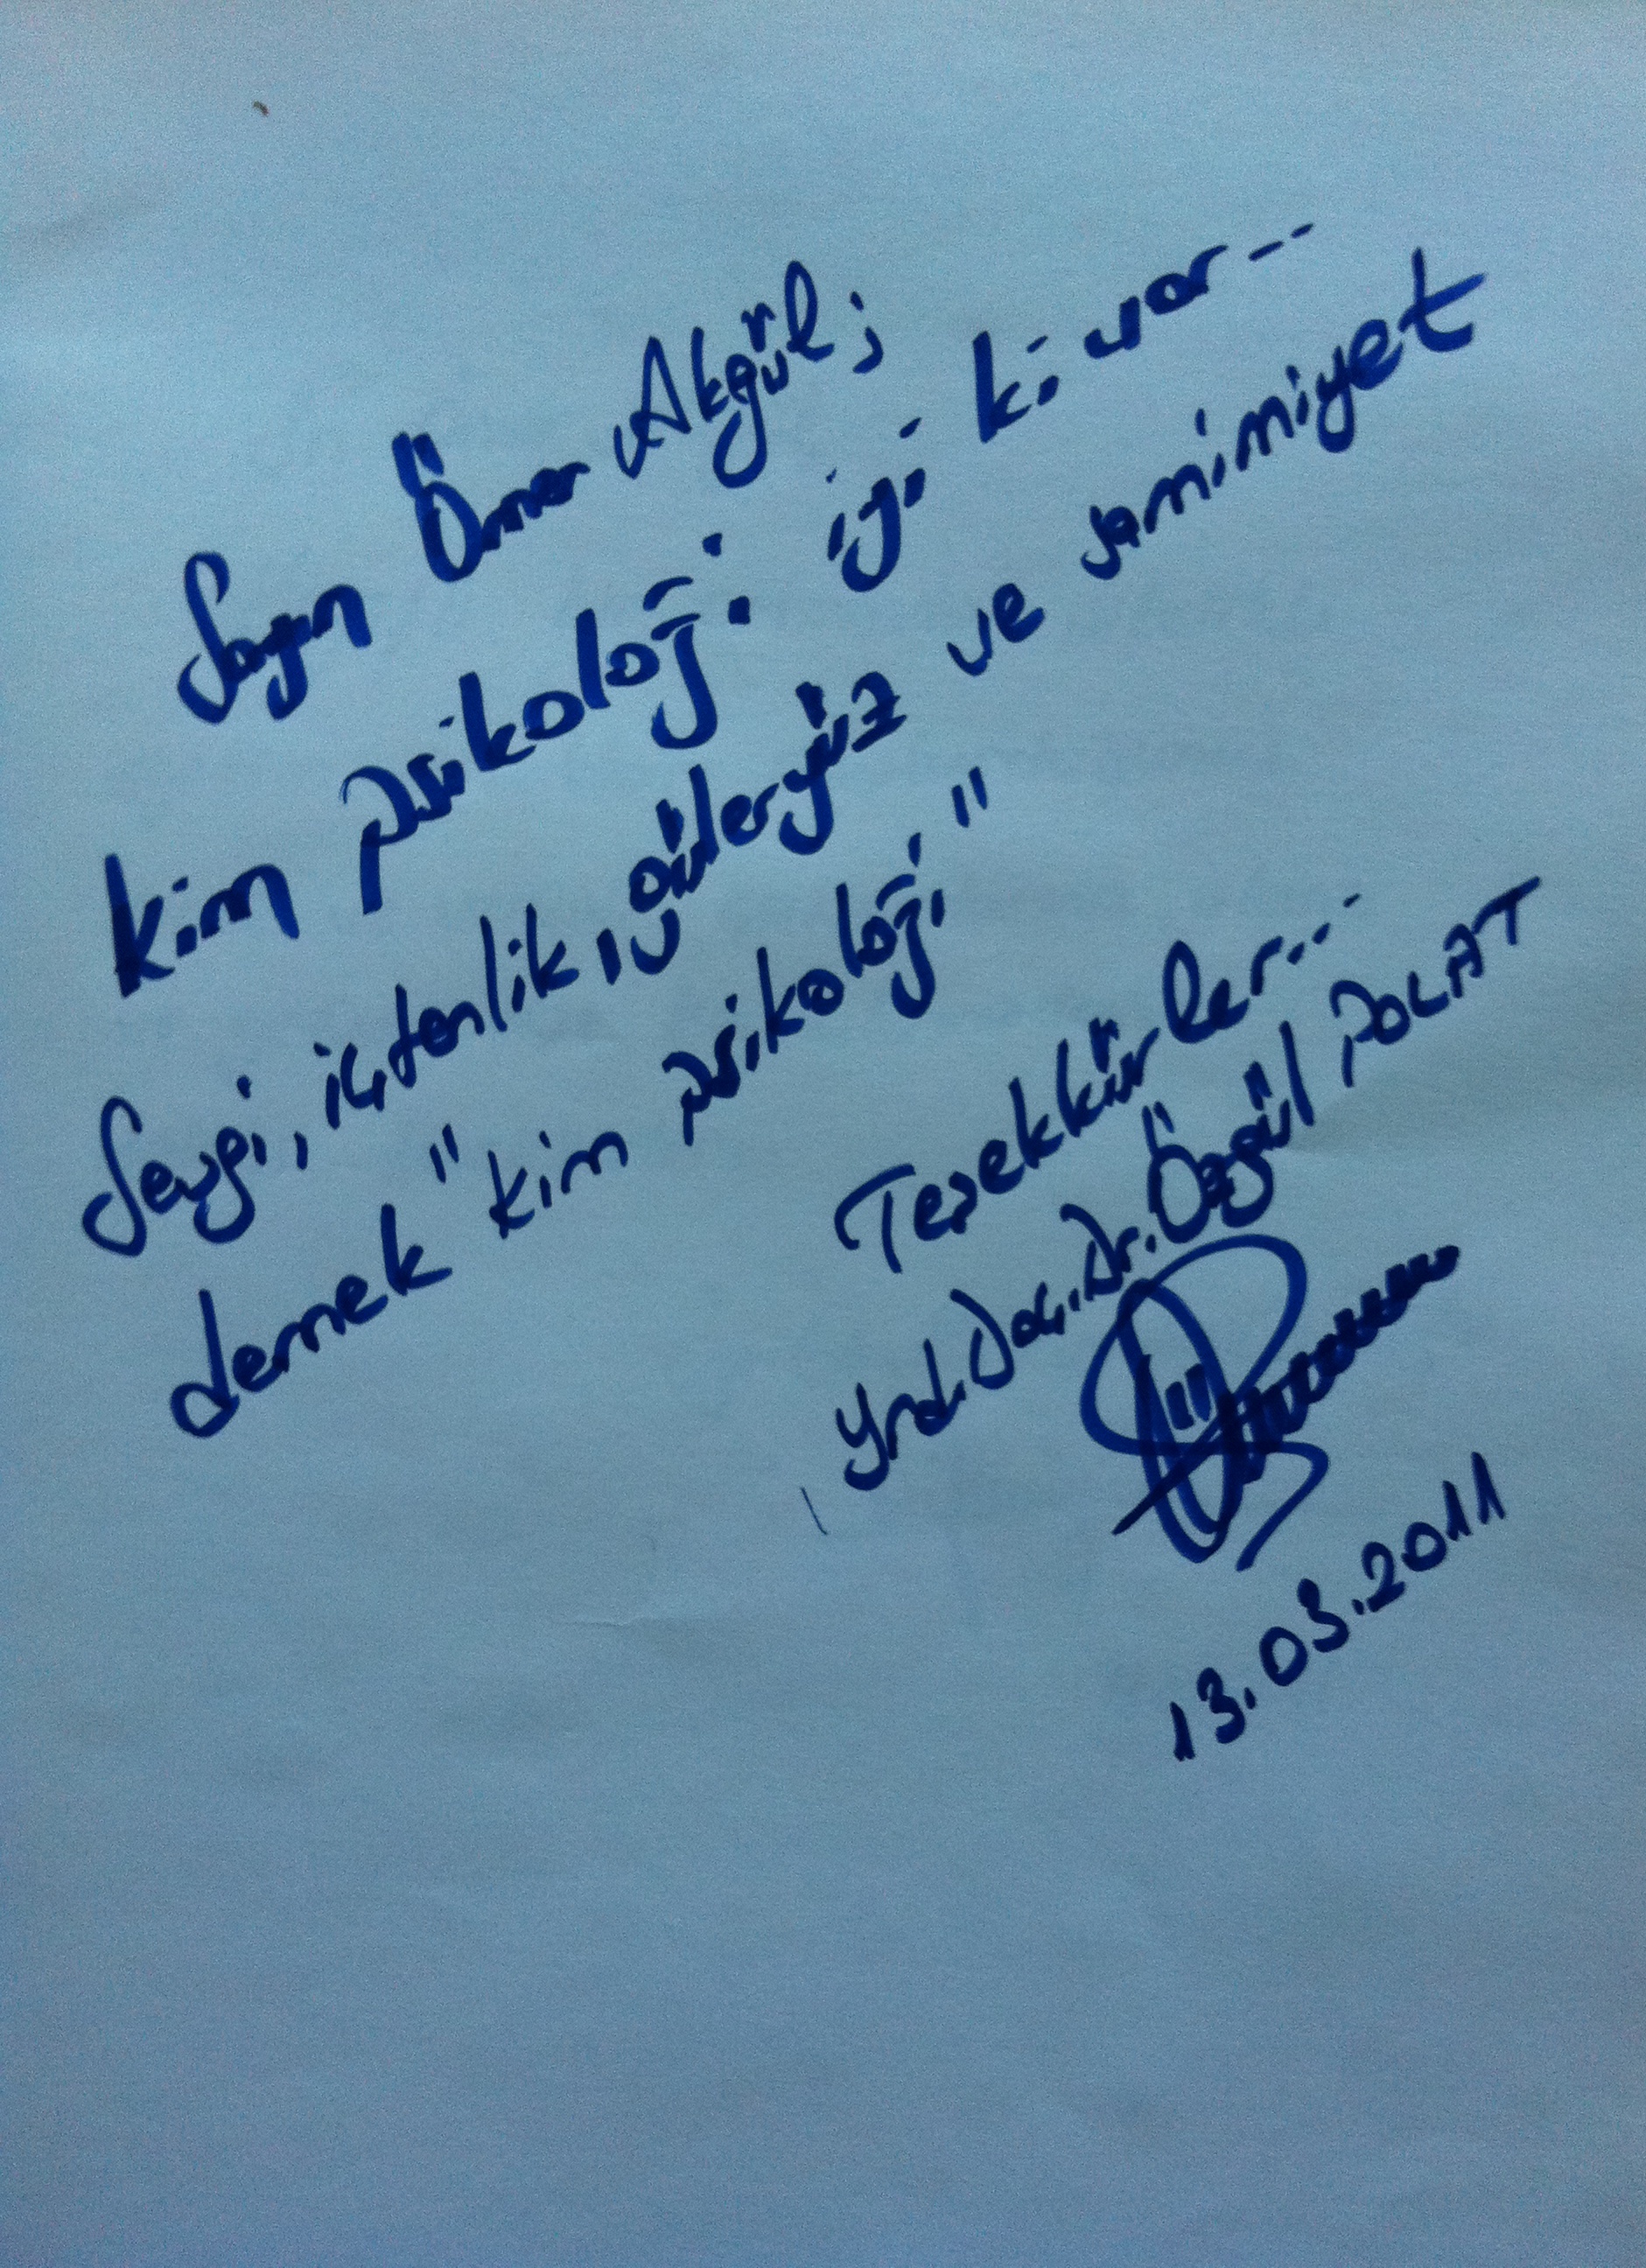 Sayın Ömer Akgül;
kim psikoloji iyi ki var...
Sevgi, içtenlik, güleryüz ve samimiyet
demek "kim psikoloji"
Teşekkürler...
Yrd. Doç. Dr. Özgül POLAT
13.03.2011